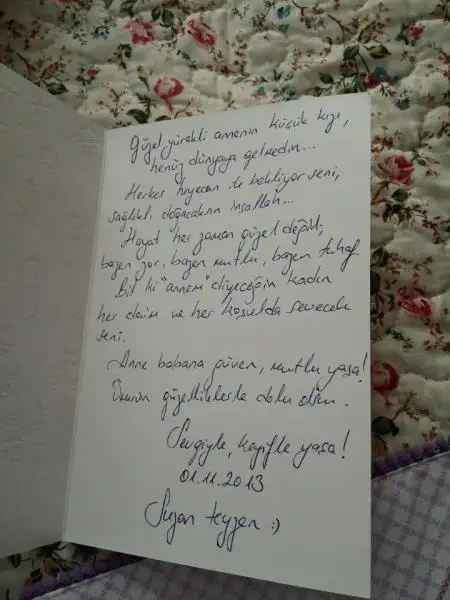 Güzel yürekli annenin küçük kızı,
henüz dünyaya gelmedin...
Herkes heyecan ile bekliyor seni,
sağlıklı doğacaksın inşallah...
Hayat her zaman güzel değil,
bazen zor, bazen mutlu, bazen tuhaf.
Bil ki "annem" diyeceğin kadın
her daim ve her koşulda sevecek
seni.
Anne babana güven, mutlu yaşa!
Ömrün güzelliklerle dolu olsun.
Sevgiyle, keyifle yaşa!
01.11.2013
Suzan teyzen :)